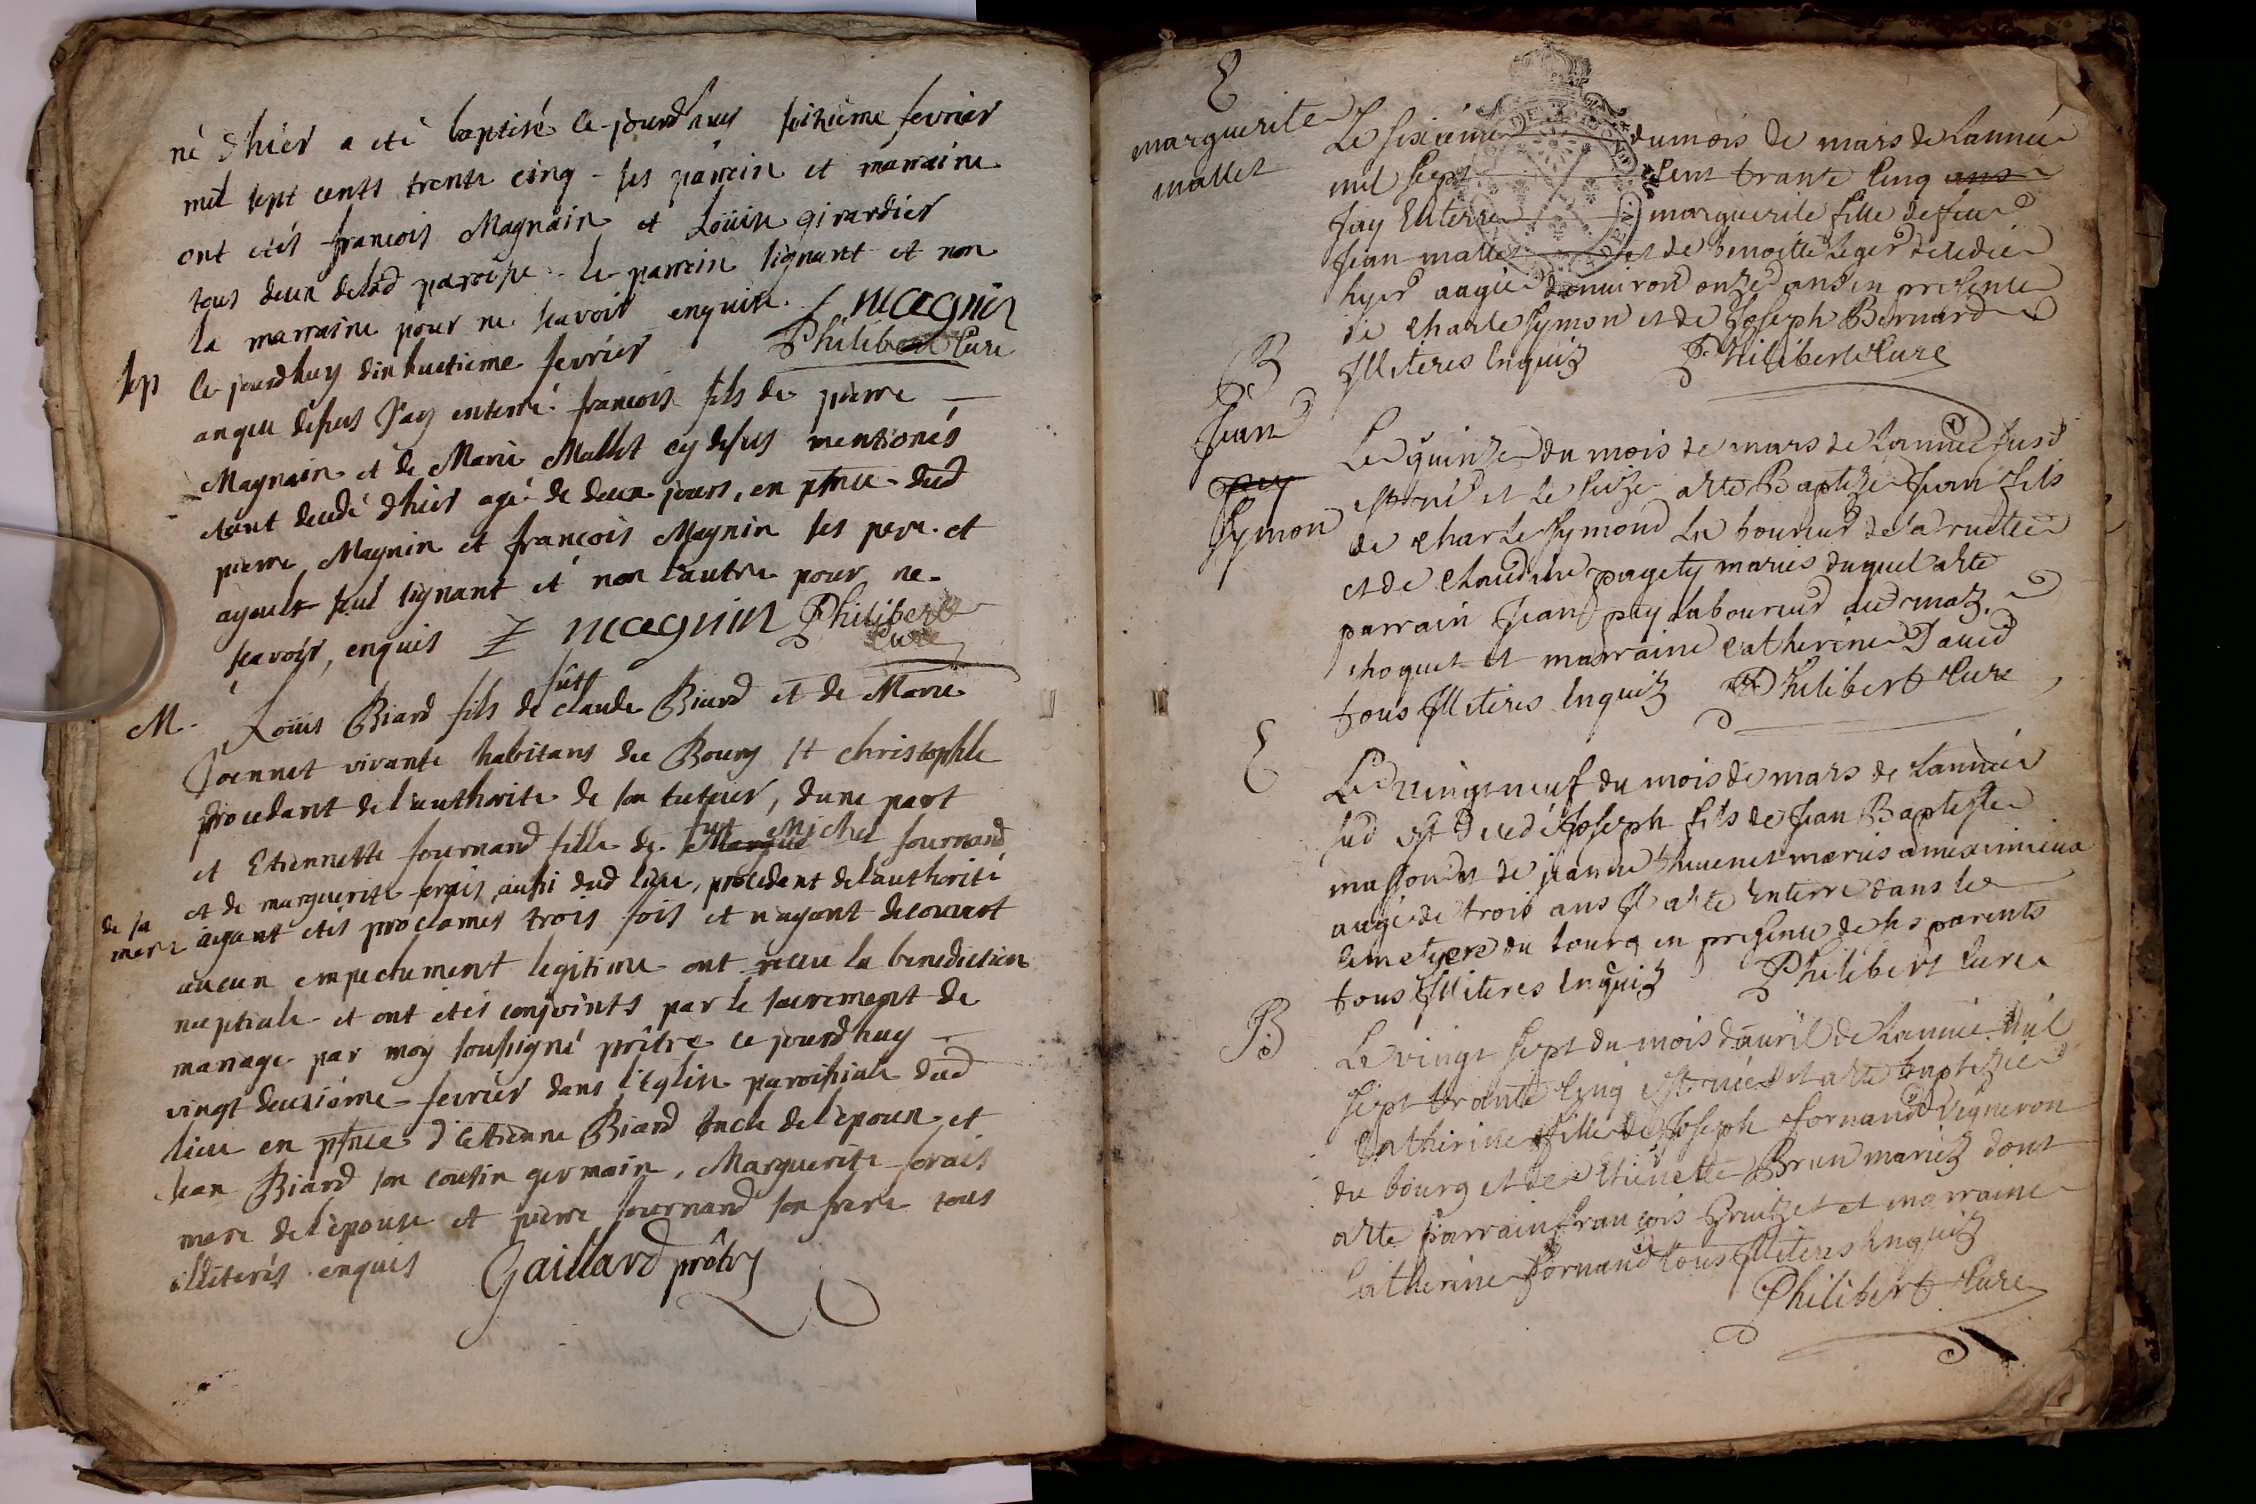 né d'hier a eté baptisé ce jourd'huy seizieme fevrier
mil sept cents trente cinq les parrein et marraine
ont etés francois Magnain et Loüise girardier
tous deux delad paroisse le parrein signant et non
la marraine pour ne scavoir enquise. f magnin
Philibert Curé
sep
ce jourdhuy dix huitieme fevrier
an que dessus J'ay enterré francois fils de pierre
Magnain et de Marie Mallet cy dessus mentionés
etant decedé d'hier agé de deux jours, en pñce dud
pierre Magnin et francois Magnin ses pere et
ayeult seul signant et non l'autre pour ne
scavoir, enquis f magnin Philibert
Curé
M.
Loüis Biard fils de fût claude Biard et de Marie
Joennet vivante habitans du Bourg st christophle
procedant de l'authorité de son tuteur, dune part
et Etiennette fournand fille de fut Michel fournand
et de marguerite forais aussi dud lieu, procedent de l'authorité
de sa
mere
ayant etés proclamés trois fois et n'ayant decouvert
aucun empechement legitime ont receu la benediction
nuptiale et ont etés conjoints par le sacrement de
mariage par moy soussigné prêtre ce jourdhuy
vingt deuxiéme fevrier dans l'Eglise paroissiale dud
lieu en pñce d'Estienne Biard Oncle de l'epoux et
Jean Biard son cousin germain, Marguerite forais
mere de l'epouse et pierre fournand son frere tous
illiterés enquis Gaillard prêtre
E
marguerite
mallet
Le sixiéme du mois de mars de Lannée
mil sept Cent trante Cinq ans
Jay Enterre marguerite fille de feu
Jean mallet et de Benoitte Leger décédée
hyer augée denuiron onze ans en presence
de Charle Symon et de Joseph Bernard
Illiteres Enquis Philibert Cure
B
Jean
pey
Symon
Le quinze du mois de mars de Lannée susd
est né et le seize a esté Baptizé Jean fils
de Charle Symond La boureur de la ruette
et de Claudine pagety mariés duquel a esté
parrain Jean pey laboureur au maz
choquet et marraine Catherine Daued
tous Illiteres Enquis Philibert Cure
E
Le vingtneuf du mois de mars de Lannée
sud est decedé Joseph fils de Jean Baptiste
masson et de jeanne thuuenet mariés a meximieux
augé de trois ans Il a esté Enterre dans le
Cimetyere du bourg en presence de ses parents
tous Illiteres Enquis Philibert Cure
B
Le vingt sept du mois dauril de Lannée Mil
sept trante Cinq est née et a esté baptizée
Catherine fille de Joseph fornand Vigneron
du bourg et de Etienette Brun mariez dont
a esté parrain françois Bruitzet et marraine
Catherine fornand tous Illiteres Enquis
Philibert Cure